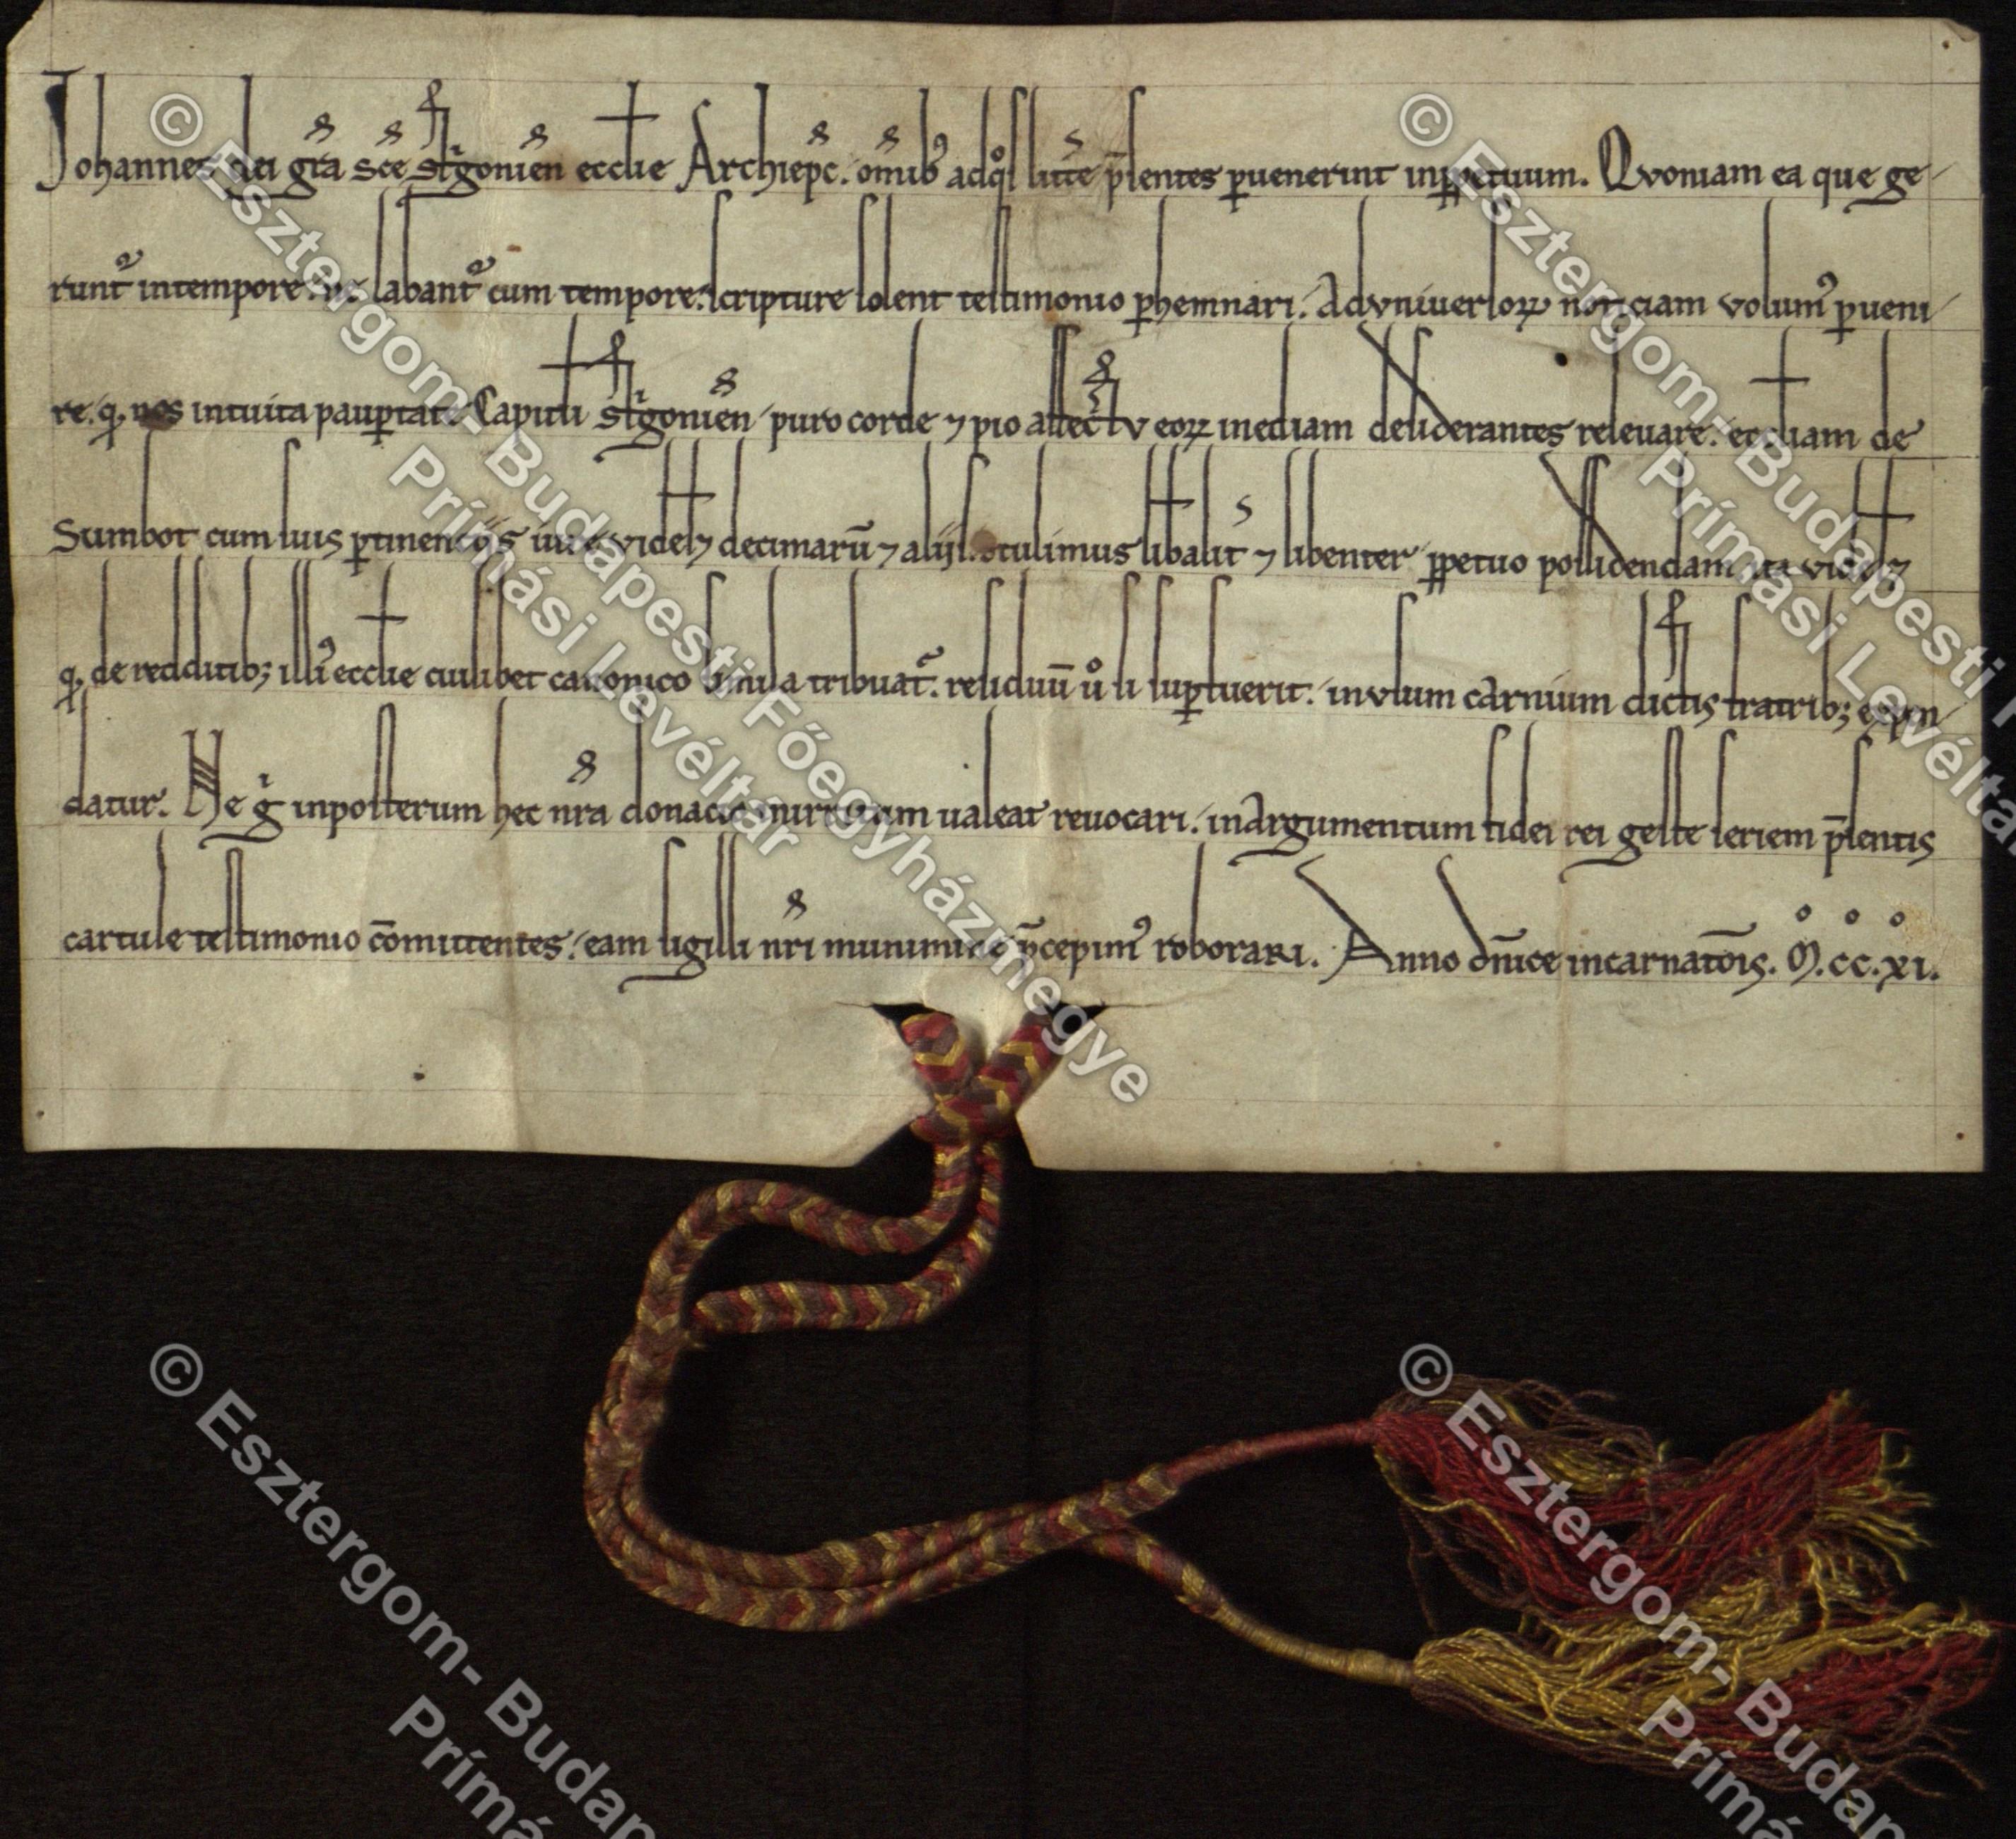 Johannes dei gr̃a sc̃e strigonien̄ ecclie Archiep̃c. om̃ibꝰ ad qͦs litt̃e p̄sentes ꝑuenerint inꝑpetuum. Qvoniam ea que ge-
runtᷣ intempore: ne labantᷣ cum tempore: scripture solent testimonio ꝑhemnari. Advniuersoꝝ noticiam volumꝰ ꝑueni-
re. ꝙ nos intuita pauꝑtate Capituli strigonien̄ puro corde ⁊ pio affectv eoꝝ inediam desiderantes releuare: eccliam de
Sumbot cum suis ꝑtinencijs iure videlꝫ decimarū ⁊ alijs ꝯtulimus libalit̃ ⁊ libenter ꝑpetuo possidendam ita videlꝫ
ꝙ de redditibꝫ illiꝰ ecclie cuilibet canonico simila tribuatᷣ. residuū uͦ si suꝑfuerit: invsum carnium dictis fratribꝫ expen-
datur. Ne gͥ inposterum hec nr̃a donacio inirritum ualeat reuocari. inArgumentum fidei rei geste seriem p̄sentis
cartule testimonio cōmittentes: eam sigilli nr̃i munimine p̄cepimꝰ roborari. Anno dn̄ice incarnatōis. M.cc.xi.
© Esztergom- Budapesti Főegyházmegye
Prímási Levéltár
© Esztergom- Budapesti
Prímási Levéltár
© Esztergom- Budap
Prímá
© Esztergom- Budap
Prímá